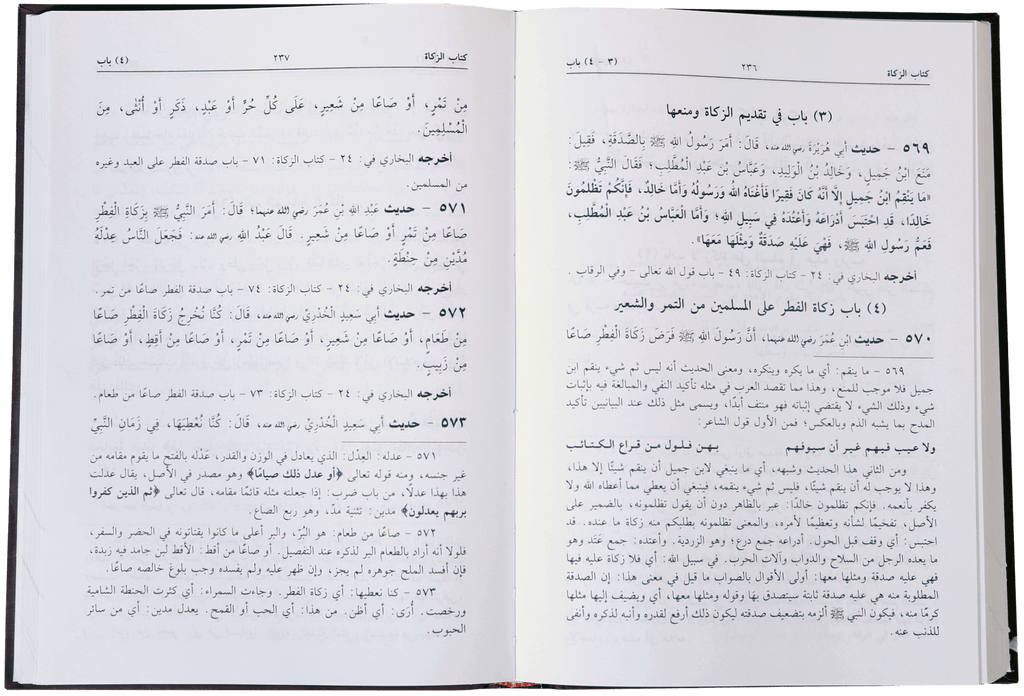 كتاب الزكاة ٢٣٦ (٣ - ٤) باب
(٣) باب في تقديم الزكاة ومنعها
٥٦٩ - حديث أَبِي هُرَيْرَةَ رضي الله عنه، قَالَ: أَمَرَ رَسُولُ اللهِ ﷺ بِالصَّدَقَةِ، فَقِيلَ:
مَنَعَ ابْنُ جَمِيلٍ، وَخَالِدُ بْنُ الْوَلِيدِ، وَعَبَّاسُ بْنُ عَبْدِ الْمُطَّلِبِ؛ فَقَالَ النَّبِيُّ ﷺ:
«مَا يَنْقِمُ ابْنُ جَمِيلٍ إِلَّا أَنَّهُ كَانَ فَقِيرًا فَأَغْنَاهُ اللهُ وَرَسُولُهُ وَأَمَّا خَالِدٌ، فَإِنَّكُمْ تَظْلِمُونَ
خَالِدًا، قَدِ احْتَبَسَ أَدْرَاعَهُ وَأَعْتُدَهُ فِي سَبِيلِ اللهِ؛ وَأَمَّا الْعَبَّاسُ بْنُ عَبْدِ الْمُطَّلِبِ،
فَعَمُّ رَسُولِ اللهِ ﷺ، فَهِيَ عَلَيْهِ صَدَقَةٌ وَمِثْلُهَا مَعَهَا».
أخرجه البخاري في: ٢٤ - كتاب الزكاة: ٤٩ - باب قول الله تعالى - وفي الرقاب.
(٤) باب زكاة الفطر على المسلمين من التمر والشعير
٥٧٠ - حديث ابْنِ عُمَرَ رضي الله عنهما، أَنَّ رَسُولَ اللهِ ﷺ فَرَضَ زَكَاةَ الْفِطْرِ صَاعًا
٥٦٩ - ما ينقم: أي ما يكره وينكره، ومعنى الحديث أنه ليس ثم شيء ينقم ابن
جميل فلا موجب للمنع، وهذا مما تقصد العرب في مثله تأكيد النفي والمبالغة فيه بإثبات
شيء وذلك الشيء لا يقتضي إثباته فهو منتف أبدًا، ويسمى مثل ذلك عند البيانيين تأكيد
المدح بما يشبه الذم وبالعكس؛ فمن الأول قول الشاعر:
ولا عيب فيهم غير أن سيوفهم بهن فلول من قراع الكتائب
ومن الثاني هذا الحديث وشبهه، أي ما ينبغي لابن جميل أن ينقم شيئًا إلا هذا،
وهذا لا يوجب له أن ينقم شيئًا، فليس ثم شيء ينقمه، فينبغي أن يعطي مما أعطاه الله ولا
يكفر بأنعمه. فإنكم تظلمون خالدًا: عبر بالظاهر دون أن يقول تظلمونه، بالضمير على
الأصل، تفخيمًا لشأنه وتعظيمًا لأمره، والمعنى تظلمونه بطلبكم منه زكاة ما عنده. قد
احتبس: أي وقف قبل الحول. أدراعه جمع درع؛ وهو الزردية. وأعتده: جمع عَتَد وهو
ما يعده الرجل من السلاح والدواب وآلات الحرب. في سبيل الله: أي فلا زكاة عليه فيها
فهي عليه صدقة ومثلها معها: أولى الأقوال بالصواب ما قيل في معنى هذا: إن الصدقة
المطلوبة منه هي عليه صدقة ثابتة سيتصدق بهَا وقوله ومثلها معها، أي ويضيف إليها مثلها
كرمًا منه، فيكون النبي ﷺ ألزمه بتضعيف صدقته ليكون ذلك أرفع لقدره وأنبه لذكره وأنفى
للذنب عنه.
كتاب الزكاة ٢٣٧ (٤) باب
مِنْ تَمْرٍ، أَوْ صَاعًا مِنْ شَعِيرٍ، عَلَى كُلِّ حُرٍّ أَوْ عَبْدٍ، ذَكَرٍ أَوْ أُنْثَى، مِنَ
الْمُسْلِمِينَ.
أخرجه البخاري في: ٢٤ - كتاب الزكاة: ٧١ - باب صدقة الفطر على العبد وغيره
من المسلمين.
٥٧١ - حديث عَبْدِ اللهِ بْنِ عُمَرَ رضي الله عنهما؛ قَالَ: أَمَرَ النَّبِيُّ ﷺ بِزَكَاةِ الْفِطْرِ
صَاعًا مِنْ تَمْرٍ أَوْ صَاعًا مِنْ شَعِيرٍ. قَالَ عَبْدُ اللهِ رضي الله عنه: فَجَعَلَ النَّاسُ عِدْلَهُ
مُدَّيْنِ مِنْ حِنْطَةٍ.
أخرجه البخاري في: ٢٤ - كتاب الزكاة: ٧٤ - باب صدقة الفطر صاعًا من تمر.
٥٧٢ - حديث أَبِي سَعِيدٍ الْخُدْرِيِّ رضي الله عنه، قَالَ: كُنَّا نُخْرِجُ زَكَاةَ الْفِطْرِ صَاعًا
مِنْ طَعَامٍ، أَوْ صَاعًا مِنْ شَعِيرٍ، أَوْ صَاعًا مِنْ تَمْرٍ، أَوْ صَاعًا مِنْ أَقِطٍ، أَوْ صَاعًا
مِنْ زَبِيبٍ.
أخرجه البخاري في: ٢٤ - كتاب الزكاة: ٧٣ - باب صدقة الفطر صاعًا من طعام.
٥٧٣ - حديث أَبِي سَعِيدٍ الْخُدْرِيِّ رضي الله عنه، قَالَ: كُنَّا نُعْطِيهَا، فِي زَمَانِ النَّبِيِّ
٥٧١ - عدله: العِدْل: الذي يعادل في الوزن والقدر، عَدْله بالفتح ما يقوم مقامه من
غير جنسه، ومنه قوله تعالى ﴿أو عدل ذلك صيامًا﴾ وهو مصدر في الأصل، يقال عدلت
هذا بهذا عدلًا، من باب ضرب: إذا جعلته مثله قائمًا مقامه، قال تعالى ﴿ثم الذين كفروا
بربهم يعدلون﴾ مدين: تثنية مدّ، وهو ربع الصاع.
٥٧٢ - صاعًا من طعام: هو البُرّ، والبر أعلى ما كانوا يقتاتونه في الحضر والسفر،
فلولا أنه أراد بالطعام البر لذكره عند التفصيل. أو صاعًا من أقط: الأقط لبن جامد فيه زبدة،
فإن أفسد الملح جوهره لم يجز، وإن ظهر عليه ولم يفسده وجب بلوغ خالصه صاعًا.
٥٧٣ - كنا نعطيها: أي زكاة الفطر. وجاءت السمراء: أي كثرت الحنطة الشامية
ورخصت. أُرَى: أي أظن. من هذا: أي الحب أو القمح. يعدل مدين: أي من سائر
الحبوب.